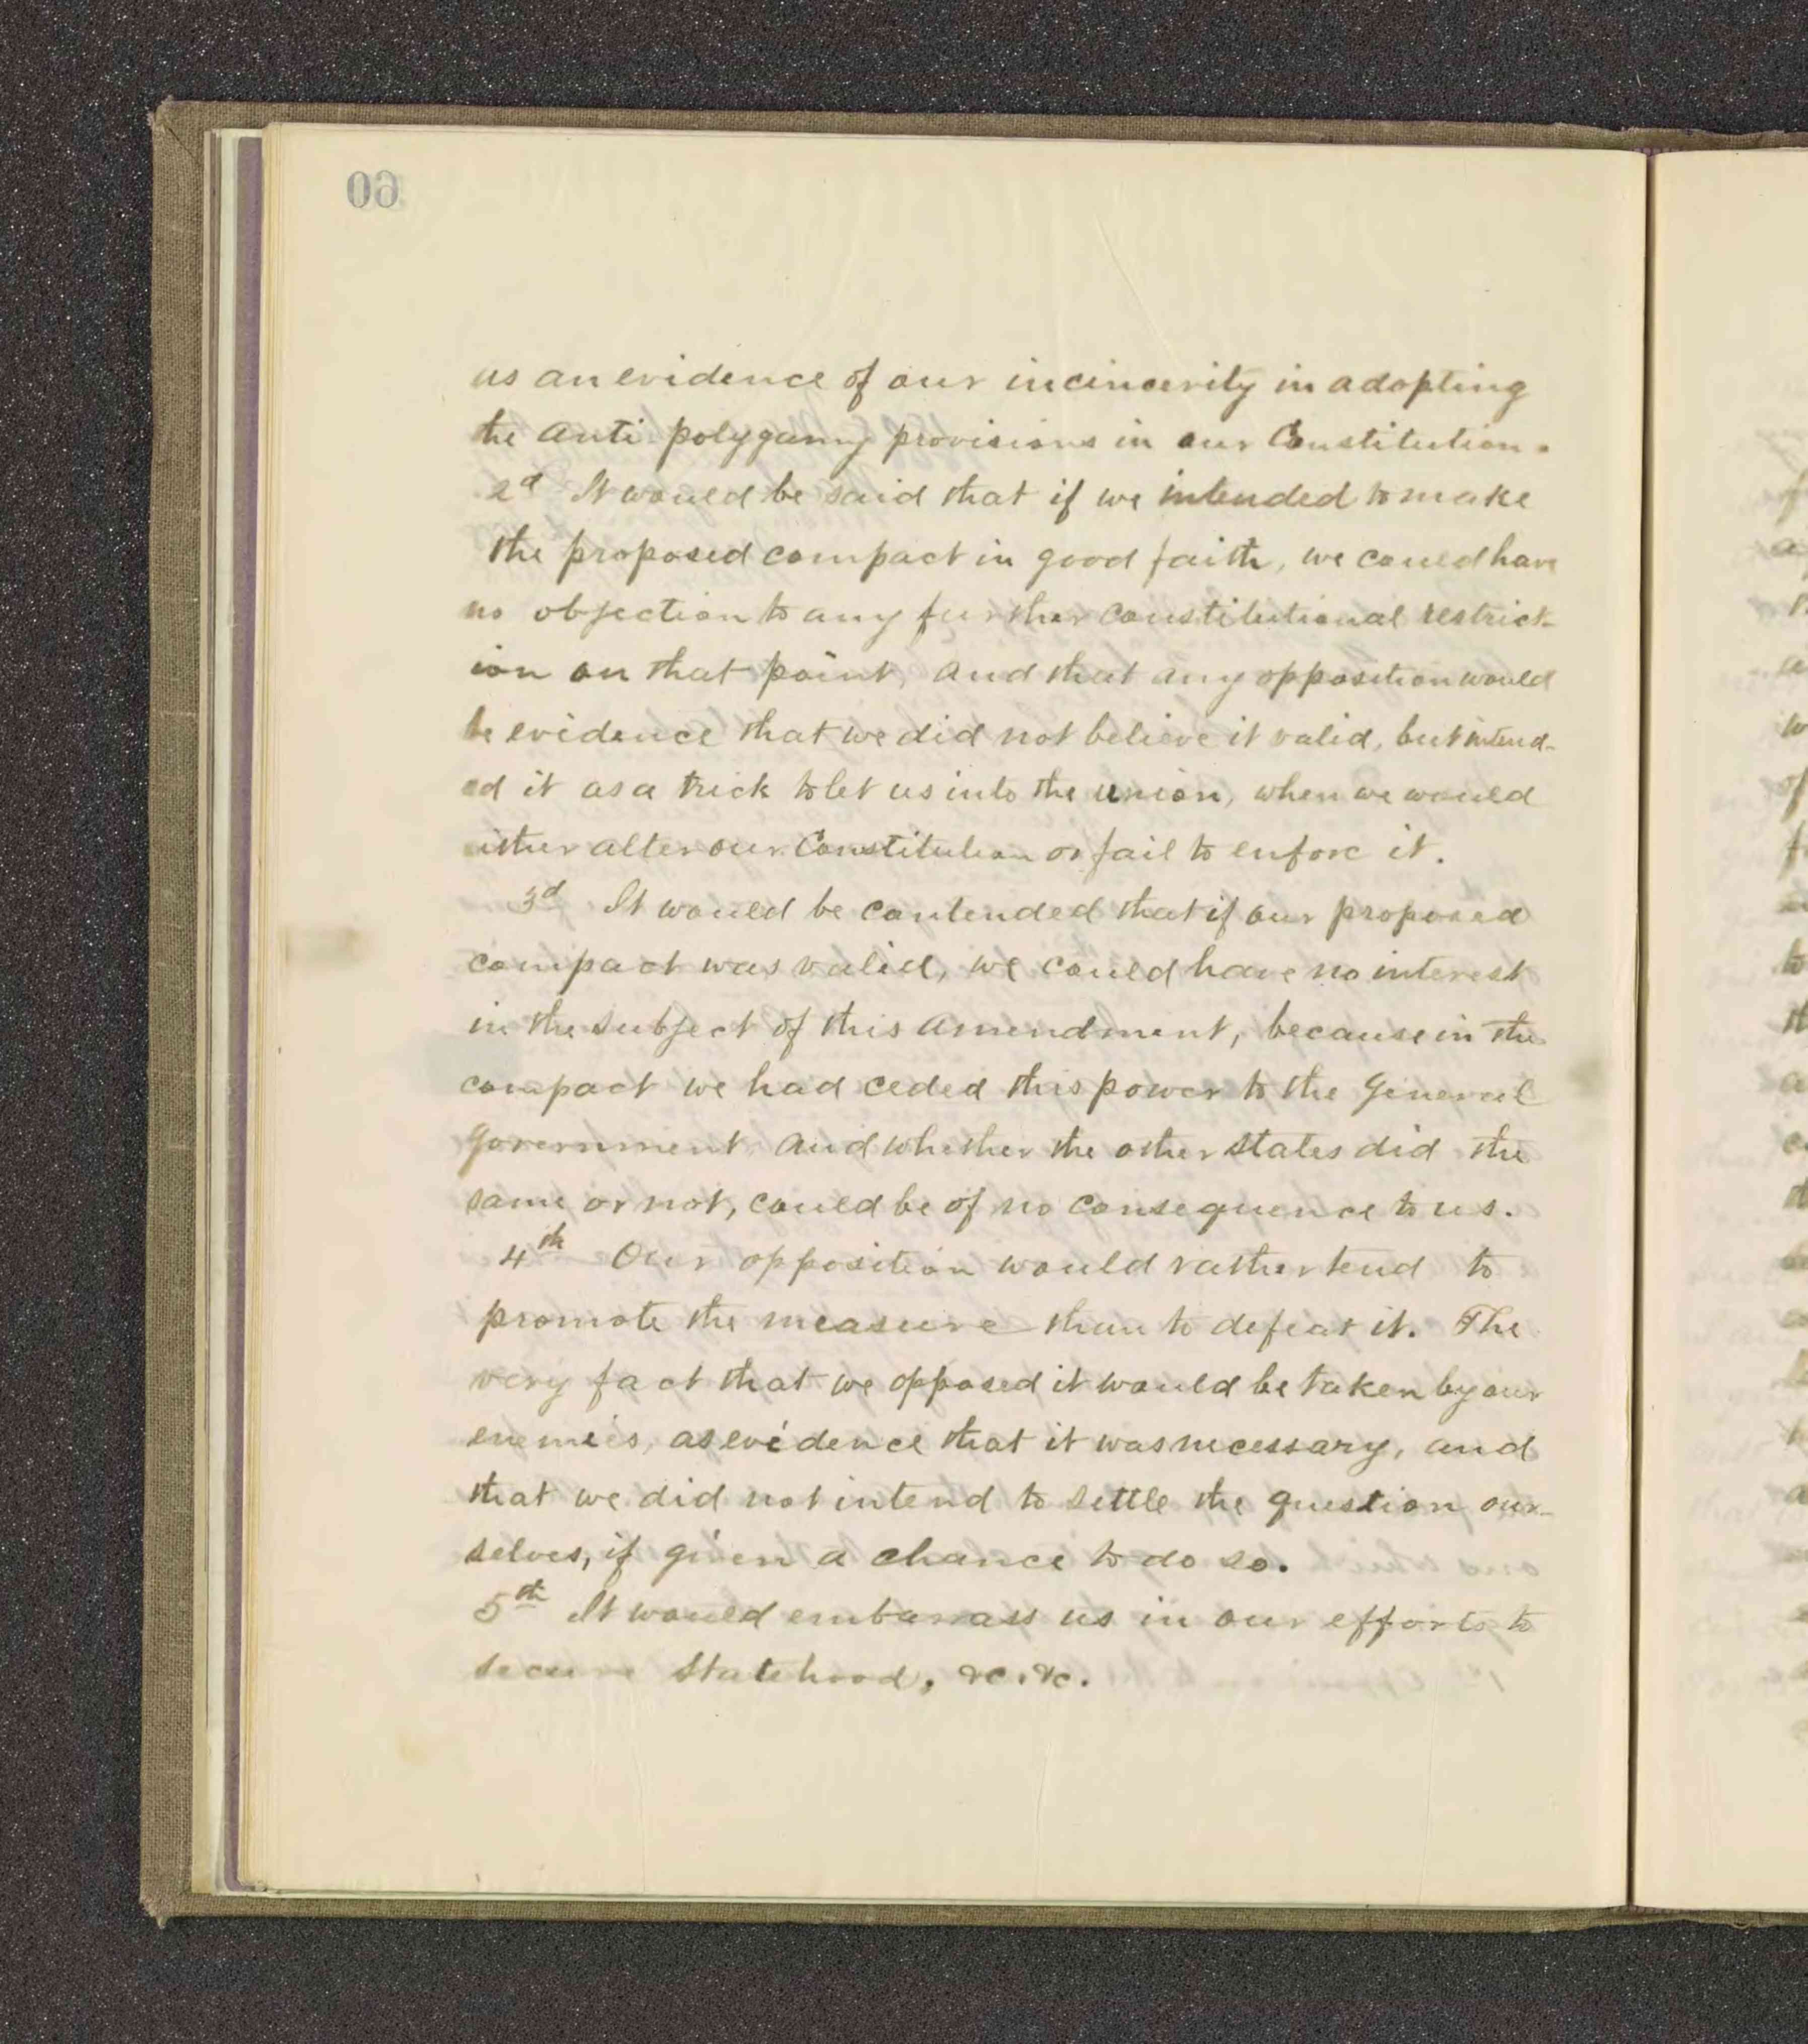 60
us an evidence of our incincerity in adopting
the Anti polygamy provisions in our Constitution.
2d It would be said that if we intended to make
the proposed compact in good faith, we could have
no objection to any further Constitutional restrict-
ion on that point, and that any opposition would
be evidence that we did not believe it valid, but intend-
ed it as a trick to let us into the union, when we would
either alter our Constitution or fail to enforc it.
3d It would be contended that if our proposed
compact was valid, we could have no interest
in the subject of this amendment, because in the
compact we had ceded this power to the General
Government and whether the other states did the
same or not, could be of no consequence to us.
4th Our opposition would rather tend to
promote the measure than to defeat it. The
very fact that we opposed it would be taken by our
enemies, as evidence that it was necessary, and
that we did not intend to settle the question our-
selves, if given a chance to do so.
5th It would embarrass us in our efforts to
secure Statehood, &c. &c.